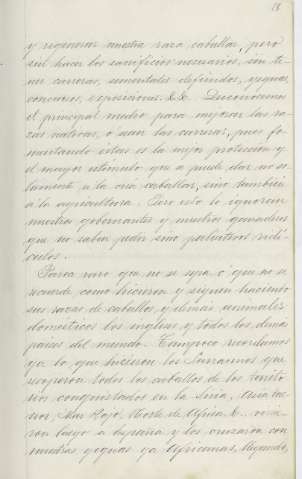 18
y regenerar nuestra raza caballar, pero
sin hacer los sacrificios necesarios, sin te-
ner carreras, sementales definidos, yeguas,
concursos, exposiciones &.&. Desconocemos
el principal medio para mejorar las ra-
zas nativas, ó sean las carreras, pues fo-
mentando éstas es la mejor protección y
el mayor estímulo que se puede dar no so-
lamente a la cria caballar, sino también
á la agricultura. Pero esto lo ignoran
nuestros gobernantes y muchos ganaderos
que no saben pedir sino paliativos ridí-
culos.
Parece raro que no se sepa ó que no se
recuerde como hicieron y siguen haciendo
sus razas de caballos y demás animales
domésticos los ingleses y todos los demás
paises del mundo. Tampoco recordamos
ya lo que hicieron los Sarracenos que
recogieron todos los caballos de los territo-
rios conquistados en la Siria, Asia me-
nor, Mar Rojo, Norte de Africa &. vinie-
ron luego a España y los cruzaron con
nuestras yeguas ya Africanas,